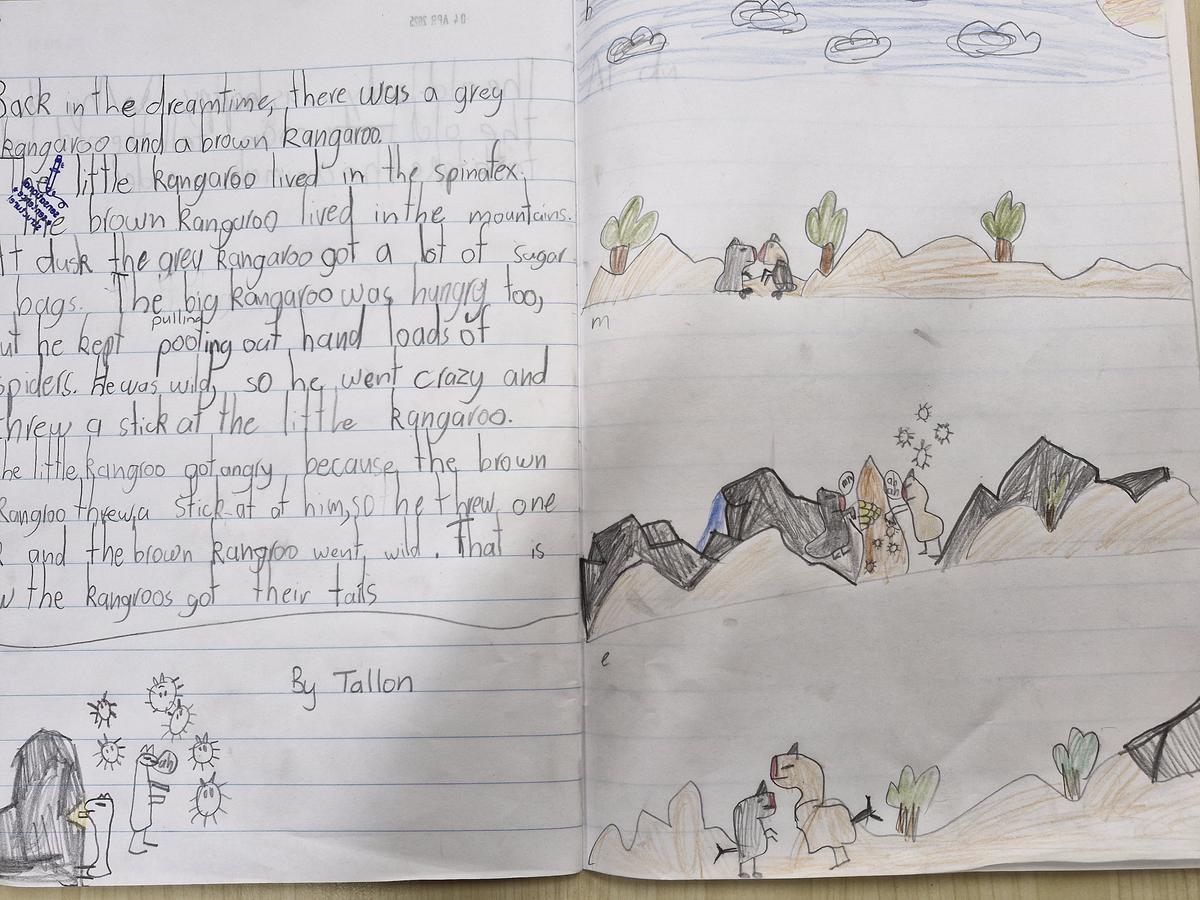 04 APR 2025
Back in the dreamtime, there was a grey
kangaroo and a brown kangaroo.
The little kangaroo lived in the spinafex.
The brown kangaroo lived in the mountains.
At dusk the grey kangaroo got a lot of sugar
bags. The big kangaroo was hungry too,
but he kept pulling pooling out hand loads of
spiders. He was wild, so he went crazy and
threw a stick at the little kangaroo.
The little Kangroo got angry, because, the brown
Kangroo threw a stick at at him, so he threw one
and the brown kangroo went wild. That is
the kangroos got their tails
By Tallon
ah
b
m
my
ah
ah
e